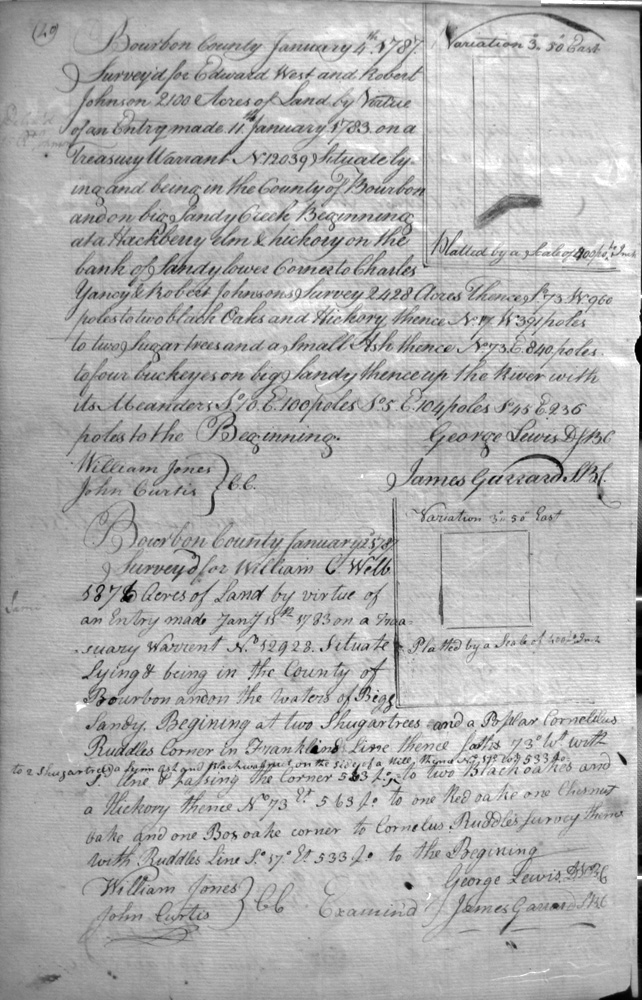 (20)
Bourbon County January 4th 1787
Survey'd for Edward West and Robert
Johnson 2100 Acres of Land by Vartue
of an Entry made 11th January 1783 on a
Treasury Warrant No 12039 Situate ly-
ing and being in the County of Bourbon
and on big Sandy Creek Beginning
at a Hackberry elm & hickory on the
bank of Sandy lower Corner to Charles
Yancy & Robert Johnsons Survey 2428 Acres Thence So 73 Wt 960
poles to two black Oaks and Hickory thence No 17 W 391 poles
to two Sugar trees and a Small Ash thence No 73 E 840 poles
to four buckeyes on big Sandy thence up the River with
its Meanders So 70 E 100 poles So 5 E 104 poles So 45 E 236
poles to the Beginning
George Lewis DSBC
William Jones
John Curtis } C.C.
James Garrard SBC
Variation 3° 50' East
Platted by a Scale of 400 po to Inch
Bourbon County January 1787
Survey'd for William C Webb
Acres of Land by virtue of
an Entry made Jany 11th 1783 on a Trea
suary Warrent No 12928 Situate
Lying & being in the County of
Bourbon and on the waters of Bigg
Sandy. Begining at two Shugartrees and a Poplar Cornelius
Ruddles Corner in Franklins Line thence South 73° Wt with
to 2 Shugartrees a Lynn ash and Black walnut on the side of a Hill thence No 17° Wt 533 po
S. Line & passing the Corner 563 po to two Black oakes and
a Hickory thence No 73 Et 563 po to one Red oake one Chesnut
oake and one Box oake corner to Cornelus Ruddles survey thence
with Ruddles Line So 17° Et 533 po to the Begining
George Lewis DSBC
William Jones
John Curtis } CC
Examined
James Garrard SBC
Variation 3° 50' East
Platted by a Scale of 400 po to Inch